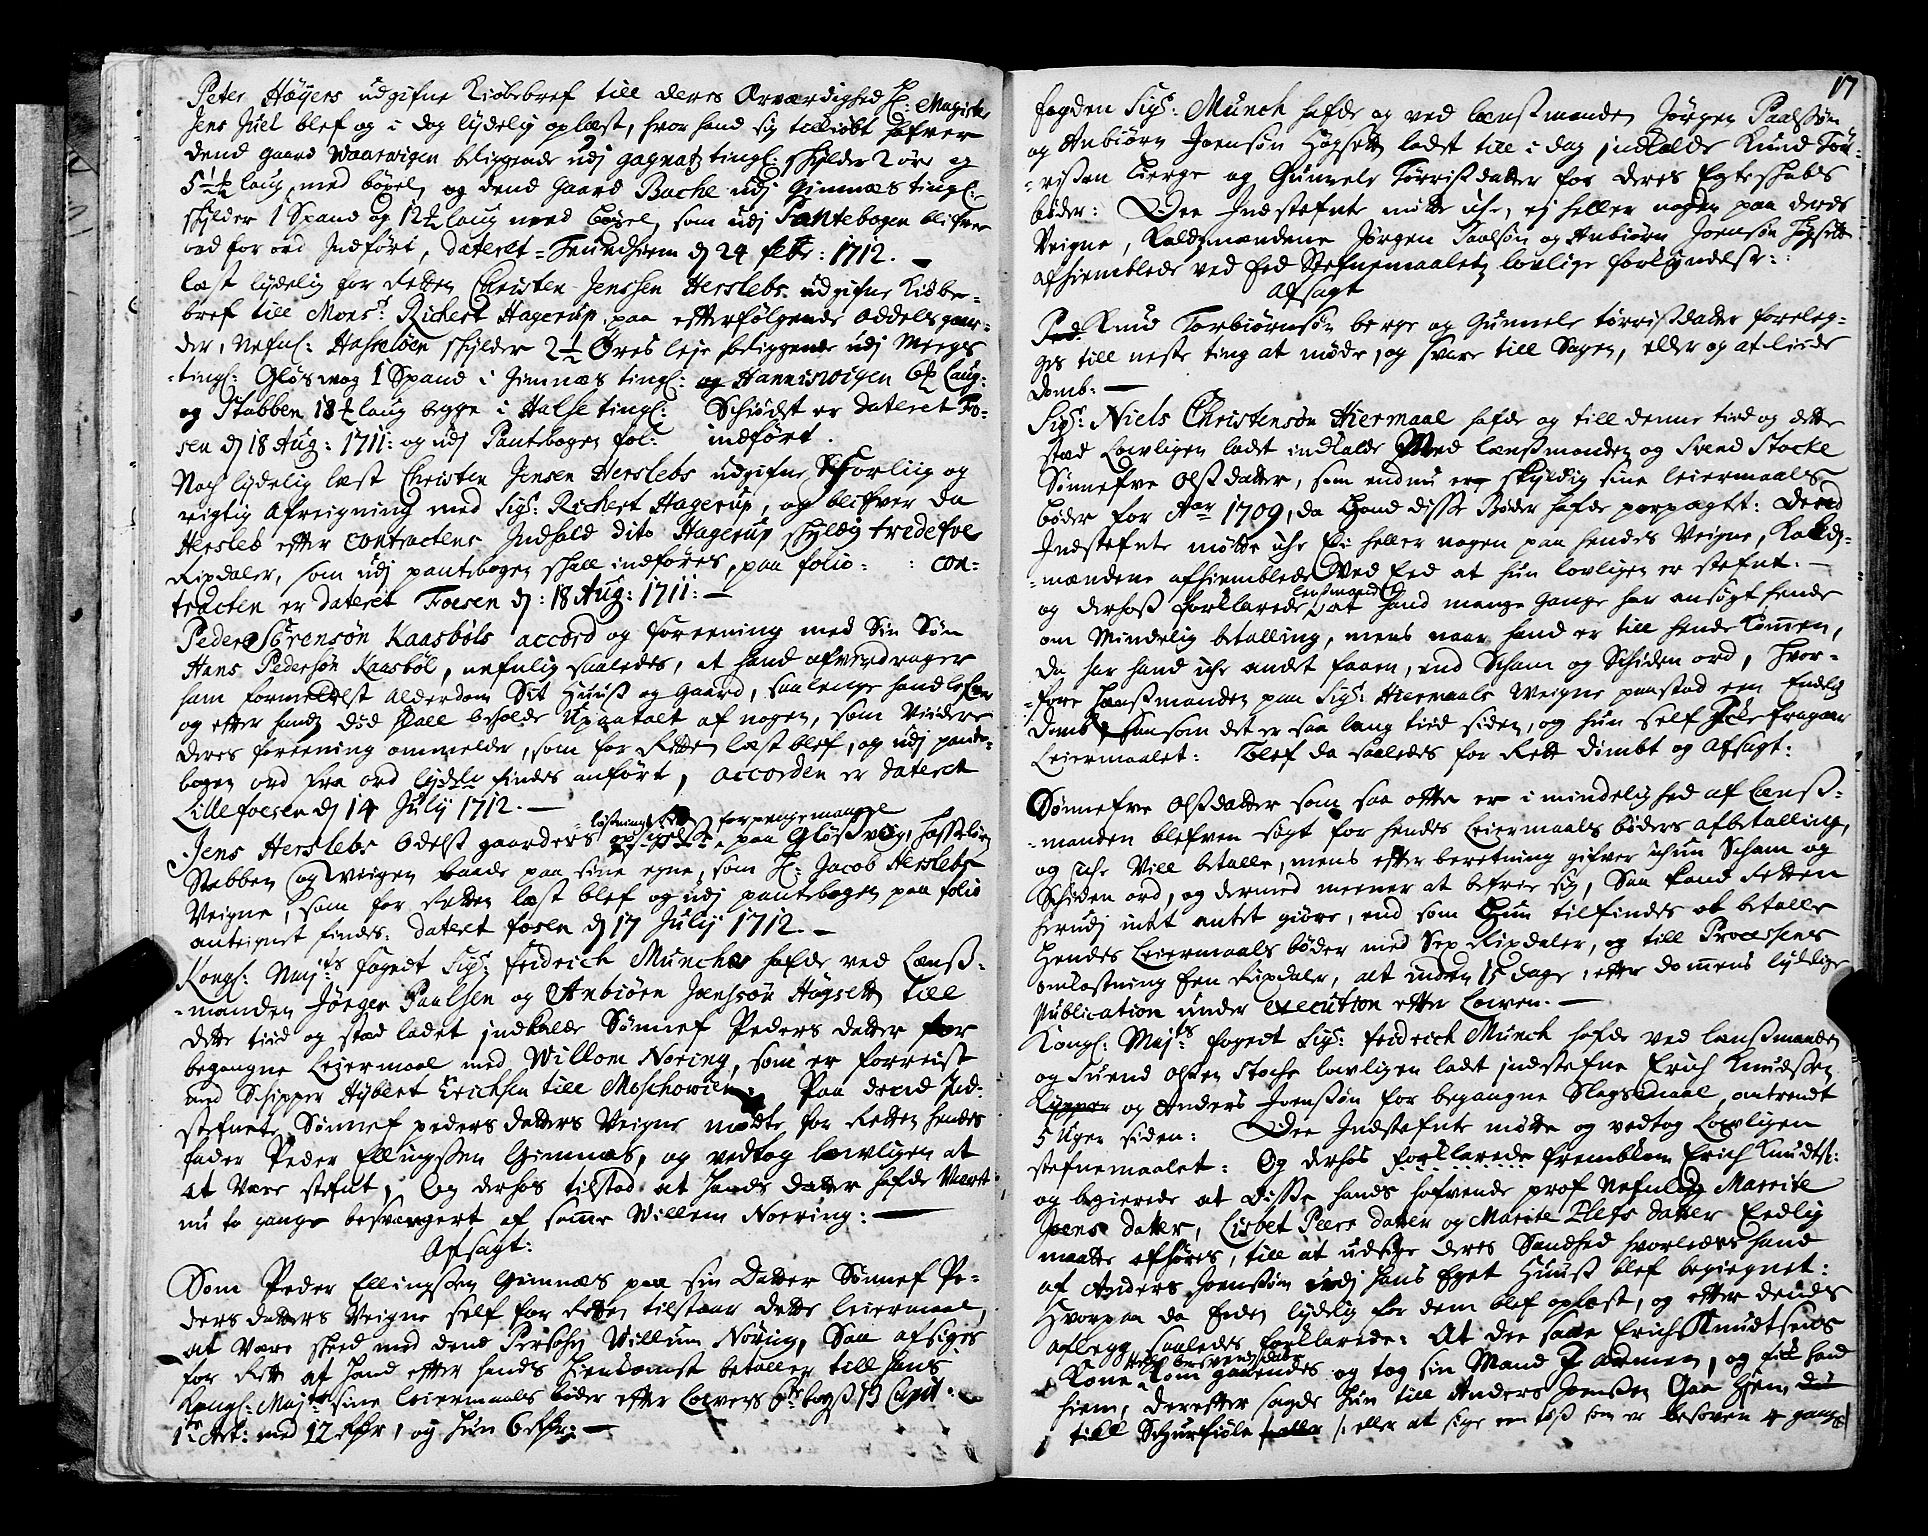 Peter Høyers udgifne Kiøbebref till deres Ærværdighed H: Magister
Jens Juel blef og i dag lydelig oplæst, hvor hand sig tilkiøbt hafver
dend gaard Waarwigen beliggende udj gagnats tingl: skylder 2 øre og
5 1/2 laug, med bøxel, og dend gaard Bache udj Gimnæs tingl:
skylder 1 Spand og 12 1/2 laug med bøxel, som udj Pantebogen blifver
ord for ord Indført, dateret Trundhiem d 24 febr: 1712.
læst lydelig for Retten Christen Jenssen Herslebs udgifne Kiøbe-
bref till Monsr Richert Hagerup paa efterfølgende oddels gaar-
der, nefnl: Hasseløen skylder 2 1/2 Øres leje beliggende udj
tingl: Gløswog 1 Spand i Gimnæs tingl: og Hanniswigen laug:
og Stabben 18 1/2 laug begge i Halse tingl: Schiødet er dateret Fo-
sen d 18 Aug: 1711: og udj Pantebogen fol: indført.
Noch lydelig læst Christen Jensen Herslebs udgifne Forliig og
rigtig Afreigning med Sigr: Richert Hagerup, og blifver da
Hersleb efter contractens Indhold dito Hagerup skyldig tredefve
Rixdaler, som udj pantebogen skall indføres, paa folio: con-
tracten er dateret Foesen d: 18 Aug: 1711:
Peder Sørensøn Kaasbøls accord og foreening med Sin Søn
Hans Pedersøn Kaasbøl, nefnlig saaledes, at hand afverdrager
ham formedelst alderdom Sit Huus og Gaard, saalenge hand lefver
og efter hands død skall beholde Upaatalt af nogen, som Viidere
deres foreening ommelder, som for Retten læst blef, og udj pante-
bogen ord fra ord lydelig findes anført, accorden er dateret
Lillefoesen d 14 July 1712.
løsnings forpengemangel
Jens Herslebs Odels gaarders paa Gløswog, Hasseløen
Stabben og wigen baade paa sine egne, som H: Jacob Herslebs
Veigne, som for Retten læst blef og udj pantebogen paa folio
anteignet findes: dateret fosen d 17 July 1712.
Kongl: Majts foget Sigr: fridrich Münch hafde ved Lenss-
manden Jørgen Paulsen og Anbiørn Joenssøn Høgsett till
dette tiid og stad ladet indkalde Sønnef Peders datter for
begangne Leiermaal med Willom Noring, som er forreist
med Schipper Hybert Erichsen till Moschowien: Paa dend Ind-
stefnte Sønnef peders datters Veigne møtte for Retten hendes
fader Peder Ellingssen Gimnæs, og vedtog lowligen at
at Være stefnt, Og derhos tilstod at hands datter hafde Været
nu to gange besvangert af samme Willem Noering:
Afsagt:
Som Peder Ellingssen Gimnæs paa sin datter Sønnef Pe-
ders datters Veigne self for Retten tilstaar dette leiermaal,
at Være skeed med dend Persohn Willum Noring, Saa afsiges
for Rett at hand efter hands hiemkomst betaller till hans
Kongl: Majts sine leiermaals bøder efter Lovens 6te bogs 13 Capt:
1te Art: med 12 Rdr, og hun 6 Rdr:
17
fogden Sigr: Münch hafde og ved lænssmanden Jørgen Paalssøn
og Anbiørn Joensøn Høgsett ladet till i dag indkalde Knud Tør-
rissen Berge og Gunnele Tørrissdatter for deres Egteskabs
bøder: Dee Indstefnte møtte iche, ej heller nogen paa deres
Veigne, Kaldsmendene Jørgen Paalsøn og Anbiørn Joensøn Høgsett
afhiemblede ved Eed Stefnemaalets lovlige forkyndelse:
Afsagt
Knud Torbiørnsøn berge og Gunnele tørrissdatter foreleg-
ges till neste ting at møde, og svare till Sagen, eller og at liide
domb:
Sigr: Niels Christensøn Hiermaal hafde og till denne tiid og dette
stæd Lovligen ladet indkalde Ved lænssmanden og Svend Stocke
Sønnefve Olssdatter, som endnu er skyldig sine leiermaals
bøder for Aar 1709, da hand disse Bøder hafde forpagtet: Dend
Indstefnte møtte iche Ei heller nogen paa hendes Veigne, Kalds-
mændene afhiemblede Ved Eed at hun lovligen er stefnt.
lensmand
og derhoss forklarede at hand mange gange har ansøgt hende
om Mindelig betalling, mens naar hand er till hende Kommen,
da har hand iche andet faaen, end Scham og Schiden ord, hvor-
fore Lænssmanden paa Sigr: Hiermaals Weigne paastod een Endelig
domb, saasom det er saa lang tiid siden, og hun self iche fragaar
Leiermaalet: Blef da saaledes for Rett dømbt og Afsagt:
Sønnefve Olssdatter som saa ofte er i mindelighed af Lænss-
manden blefven søgt for hendes Leiermaals bøders afbetalling,
og iche Vill betalle, mens efter beretning gifver ichun Scham og
Schiden ord, og dermed meener at befrie sig, Saa kand Retten
herudj intet andet giøre, end som hun tilfindes at betalle
hendes Leiermaals bøder med Sex Rixdaler, og till Processens
omkostning Een Rixdaler, alt inden 15 dage, efter dommens lydelige
Publication under execution etter Lowen.
Kongl: Majts foget Sigr: fridrich Münch hafde ved lænssmanden
og Suend Olsen Stoche lovligen ladet indstefne Erich Knudssen
og Anders Joenssøn for begangne Slagsmaal, omtrendt
5 Uger siden: Dee Indstefnte møtte og vedtog Lovligen
stefnemaalet: Og derhos forklarede fremblem Erich Knudts:
og begierede at disse hands hafvende prof Nefnlig Marrite
Joens datter, Lisbet Peers datter og Marite Elefs datter Eedlig
maatte afhøres, till at udsige deres Sandhed hvorledes hand
af Anders Joenssøn udj hans Eget Huus blef begiegnet:
Hvorpaa da Eeden lydelig for dem blef oplæst, og efter dends
aflegg saaledes forklarede: At dee saae Erich Knudtsens
Kone kom gaaendes og tog sin Mand i Armen, og fick hand
hiem, derefter sagde hun till Anders Joenssen Gaa hjem, du
till Schurfiøle /: eller at sige een tøss som er besoven 4 gange